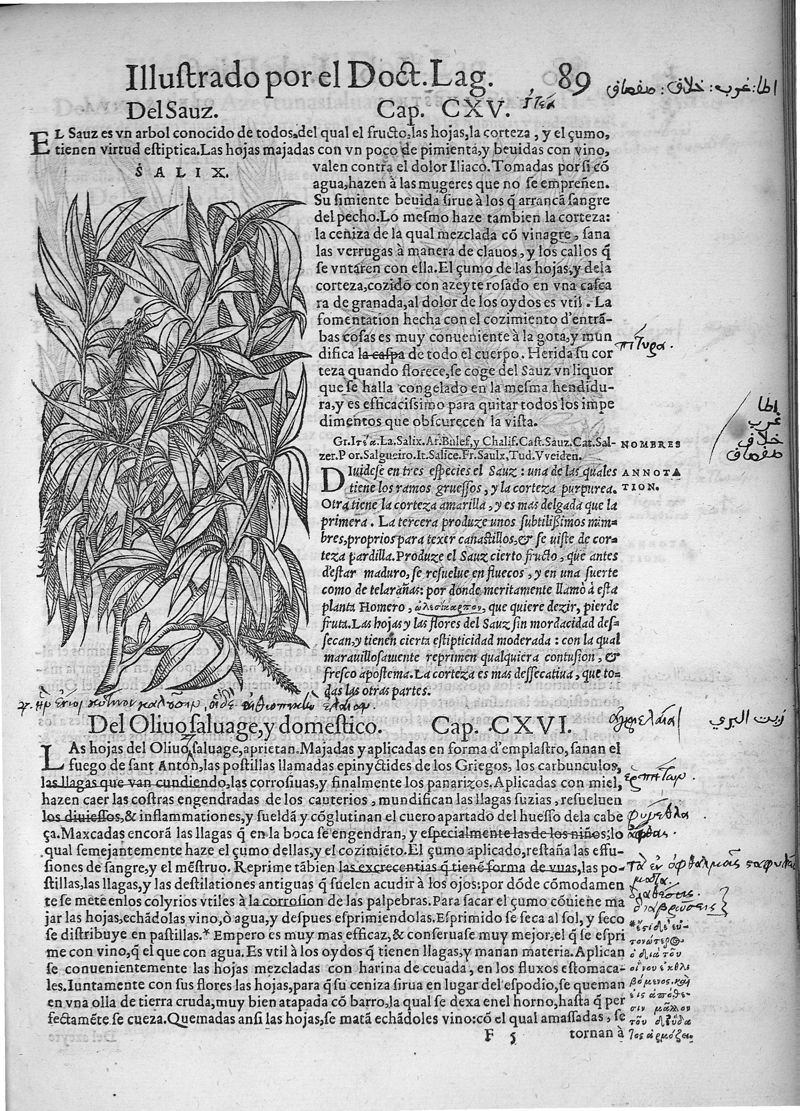 Illuſtrado por el Doct. Lag. 89
Del Sauz. Cap. CXV.
ἰτέα
اطا: غرب: خلاف: صفصاف
EL Sauz es vn arbol conocido de todos, del qual el fructo, las hojas, la corteza, y el çumo,
tienen virtud eſtiptica. Las hojas majadas con vn poço de pimienta, y beuidas con vino,
SALIX.
valen contra el dolor Iliaco. Tomadas por ſi cõ
agua, hazen à las mugeres que no ſe empreñen.
Su ſimiente beuida ſirue à los q̃ arrancã ſangre
del pecho. Lo meſmo haze tambien la corteza:
la ceniza de la qual mezclada cõ vinagre, ſana
las verrugas à manera de clauos, y los callos q̃
ſe vntaren con ella. El çumo de las hojas, y dela
corteza, cozido con azeyte roſado en vna caſca
ra de granada, al dolor de los oydos es vtil. La
fomentation hecha con el cozimiento d'entrã-
bas coſas es muy conueniente à la gota, y mun
difica la caſpa de todo el cuerpo. Herida ſu cor
πίτυρα.
teza quando florece, ſe coge del Sauz vn liquor
que ſe halla congelado en la meſma hendidu-
ra, y es efficaciſſimo para quitar todos los impe
dimentos que obſcurecen la viſta.
اطا
غرب
خلاف
صفصاف
Gr. Ιτέα. La. Salix. Ar. Bulef, y Chalif. Caſt. Sauz. Cat. Sal-
NOMBRES
zer. Por. Salgueiro. It. Salice. Fr. Saulx, Tud. Vveiden.
DIuideſe en tres eſpecies el Sauz: una de las quales
ANNOTATION.
tiene los ramos grueſſos, y la corteza purpurea.
Otra tiene la corteza amarilla, y es mas delgada que la
primera. La tercera produze unos ſubtilißimos mim-
bres, proprios para texer canaſtillos, & ſe uiſte de cor-
teza pardilla. Produze el Sauz cierto fructo, que antes
d'eſtar maduro, ſe reſuelue en fluecos, y en una ſuerte
como de telarañas: por donde meritamente llamò à eſta
planta Homero, ὠλεσίκαρπον, que quiere dezir, pierde
fruta. Las hojas y las flores del Sauz ſin mordacidad deſ-
ſecan, y tienen cierta eſtipticidad moderada: con la qual
marauilloſamente reprimen qualquiera contuſion, &
freſco apoſtema. La corteza es mas deſſecatiua, que to-
das las otras partes.
Del Oliuo ſaluage, y domeſtico. Cap. CXVI.
ἀγριελαία
زيت البري
LAs hojas del Oliuo ſaluage, aprietan. Majadas y aplicadas en forma d'emplaſtro, ſanan el
fuego de ſant Antõn, las poſtillas llamadas epinyctides de los Griegos, los carbunculos,
las llagas que van cundiendo, las corroſiuas, y finalmente los panarizos. Aplicadas con miel,
hazen caer las coſtras engendradas de los cauterios, mundifican las llagas ſuzias, reſueluen
los diuieſſos, & inflammationes, y ſueldã y cõglutinan el cuero apartado del hueſſo dela cabe
ça. Maxcadas encorã las llagas q̃ en la boca ſe engendran, y eſpecialmente las de los niños; lo
ἄφθας.
qual ſemejantemente haze el çumo dellas, y el cozimiẽto. El çumo aplicado, reſtaña las effu-
ſiones de ſangre, y el mẽſtruo. Reprime tãbien las excrecentias q̃ tienẽ forma de vuas, las po-
ſtillas, las llagas, y las deſtilationes antiguas q̃ ſuelen acudir à los ojos: por dõde cómodamen
te ſe mete enlos colyrios vtiles à la corroſion de las palpebras. Para ſacar el çumo cõuiene ma
διαβρώσεις
jar las hojas, echãdolas vino, ò agua, y deſpues eſprimiendolas. Eſprimido ſe ſeca al ſol, y ſeco
ſe diſtribuye en paſtillas.* Empero es muy mas efficaz, & conſeruaſe muy mejor, el q̃ ſe eſpri
me con vino, q̃ el que con agua. Es vtil à los oydos q̃ tienen llagas, y manan materia. Aplican
ſe conuenientemente las hojas mezcladas con harina de ceuada, en los fluxos eſtomaca-
les. Iuntamente con ſus flores las hojas, para q̃ ſu ceniza ſirua en lugar del eſpodio, ſe queman
en vna olla de tierra cruda, muy bien atapada cõ barro, la qual ſe dexa enel horno, haſta q̃ per
fectamẽte ſe cueza. Quemadas anſi las hojas, ſe matã echãdoles vino: cõ el qual amaſſadas, ſe
F 5 tornan à